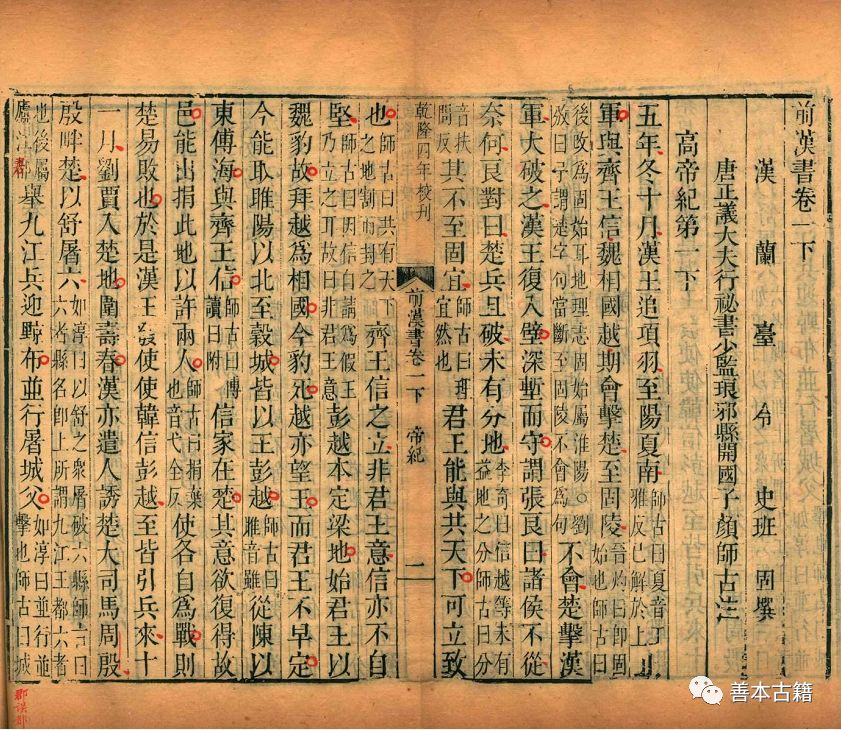 前漢書卷一下
漢蘭臺令史班固撰
唐正議大夫行祕書少監琅邪縣開國子顏師古注
高帝紀第一下
五年冬十月漢王追項羽至陽夏南師古曰夏音工雅反已解於上
軍與齊王信魏相國越期會擊楚至固陵晉灼曰即固始也師古曰
後改爲固始耳地理志固始屬淮陽○劉攽曰予謂遂字句當斷至固陵不會爲句不會楚擊漢
軍大破之漢王復入壁深塹而守謂張良曰諸侯不從
奈何良對曰楚兵且破未有分地李奇曰信越等未有益地之分師古曰分
音扶問反其不至固宜師古曰理宜然也君王能與共天下可立致
乾隆四年校刊
前漢書卷一下 帝紀 一
也師古曰共有天下之地割而封之齊王信之立非君王意信亦不自
堅師古曰因信自請爲假王乃立之耳故曰非君王意彭越本定梁地始君王以
魏豹故拜越爲相國今豹死越亦望王而君王不早定
今能取睢陽以北至穀城皆以王彭越師古曰睢音雖從陳以
東傅海與齊王信師古曰傅讀曰附信家在楚其意欲復得故
邑能出捐此地以許兩人師古曰捐棄也音弋全反使各自爲戰則
楚易敗也於是漢王發使使韓信彭越至皆引兵來十
一月劉賈入楚地圍壽春漢亦遣人誘楚大司馬周殷
殷畔楚以舒屠六如淳曰以舒之衆屠破六縣師古曰六者縣名即上所謂九江王都六者
也後屬廬江郡舉九江兵迎黥布並行屠城父如淳曰並行並擊也師古曰城
善本古籍